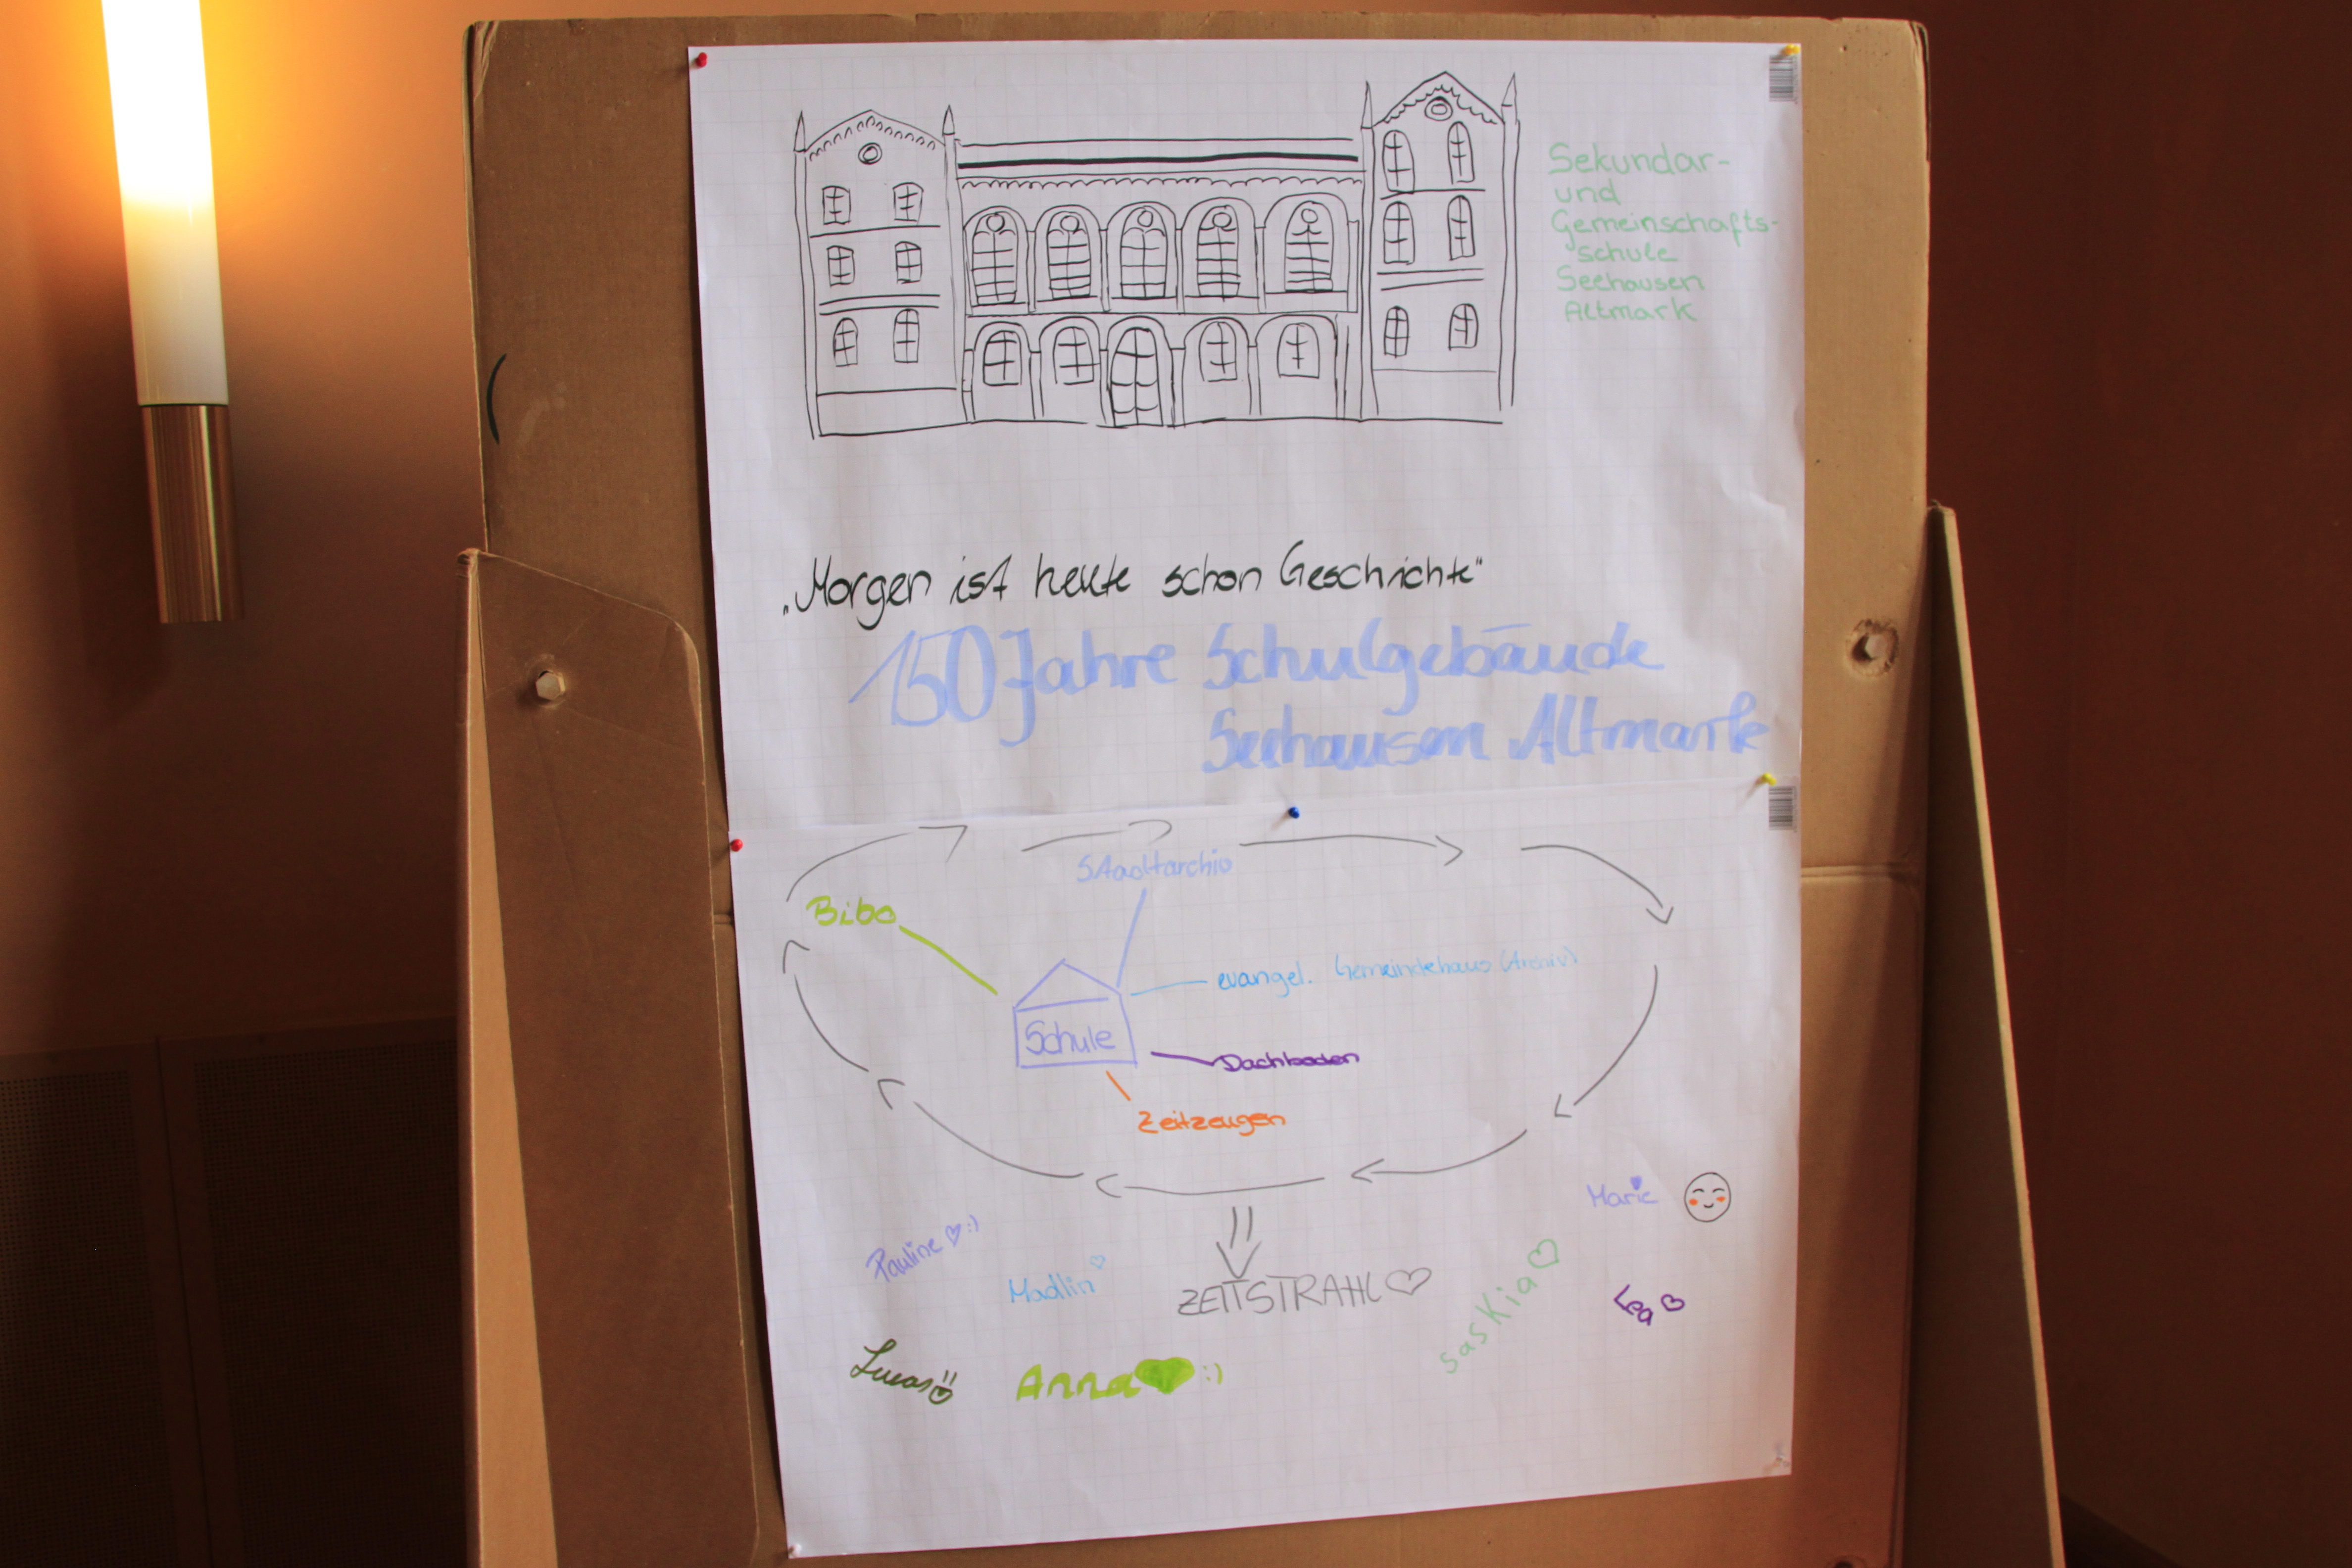 Sekundar-
und
Gemeinschafts-
schule
Seehausen
Altmark
„Morgen ist heute schon Geschichte“
150 Jahre Schulgebäude
Seehausen Altmark
Stadtarchiv
Bibo
evangel. Gemeindehaus (Archiv)
Schule
Dachboden
Zeitzeugen
Marie
Pauline ♡ :)
Madlin ♡
ZEITSTRAHL ♡
Saskia ♡
Lucas
Anna ♥ :)